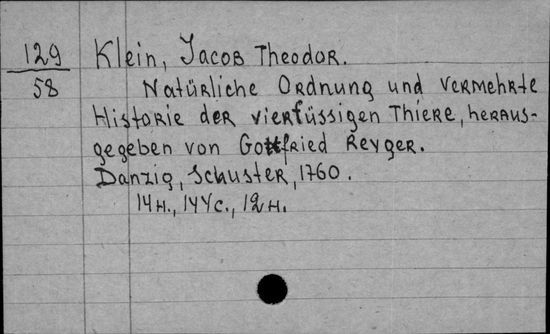 129
58
Klein, Jacob Theodor.
Natürliche Ordnung und vermehrte
Historie der vierfüssigen Thiere, heraus-
gegeben von Gottfried Reyger.
Danzig, Schuster, 1760.